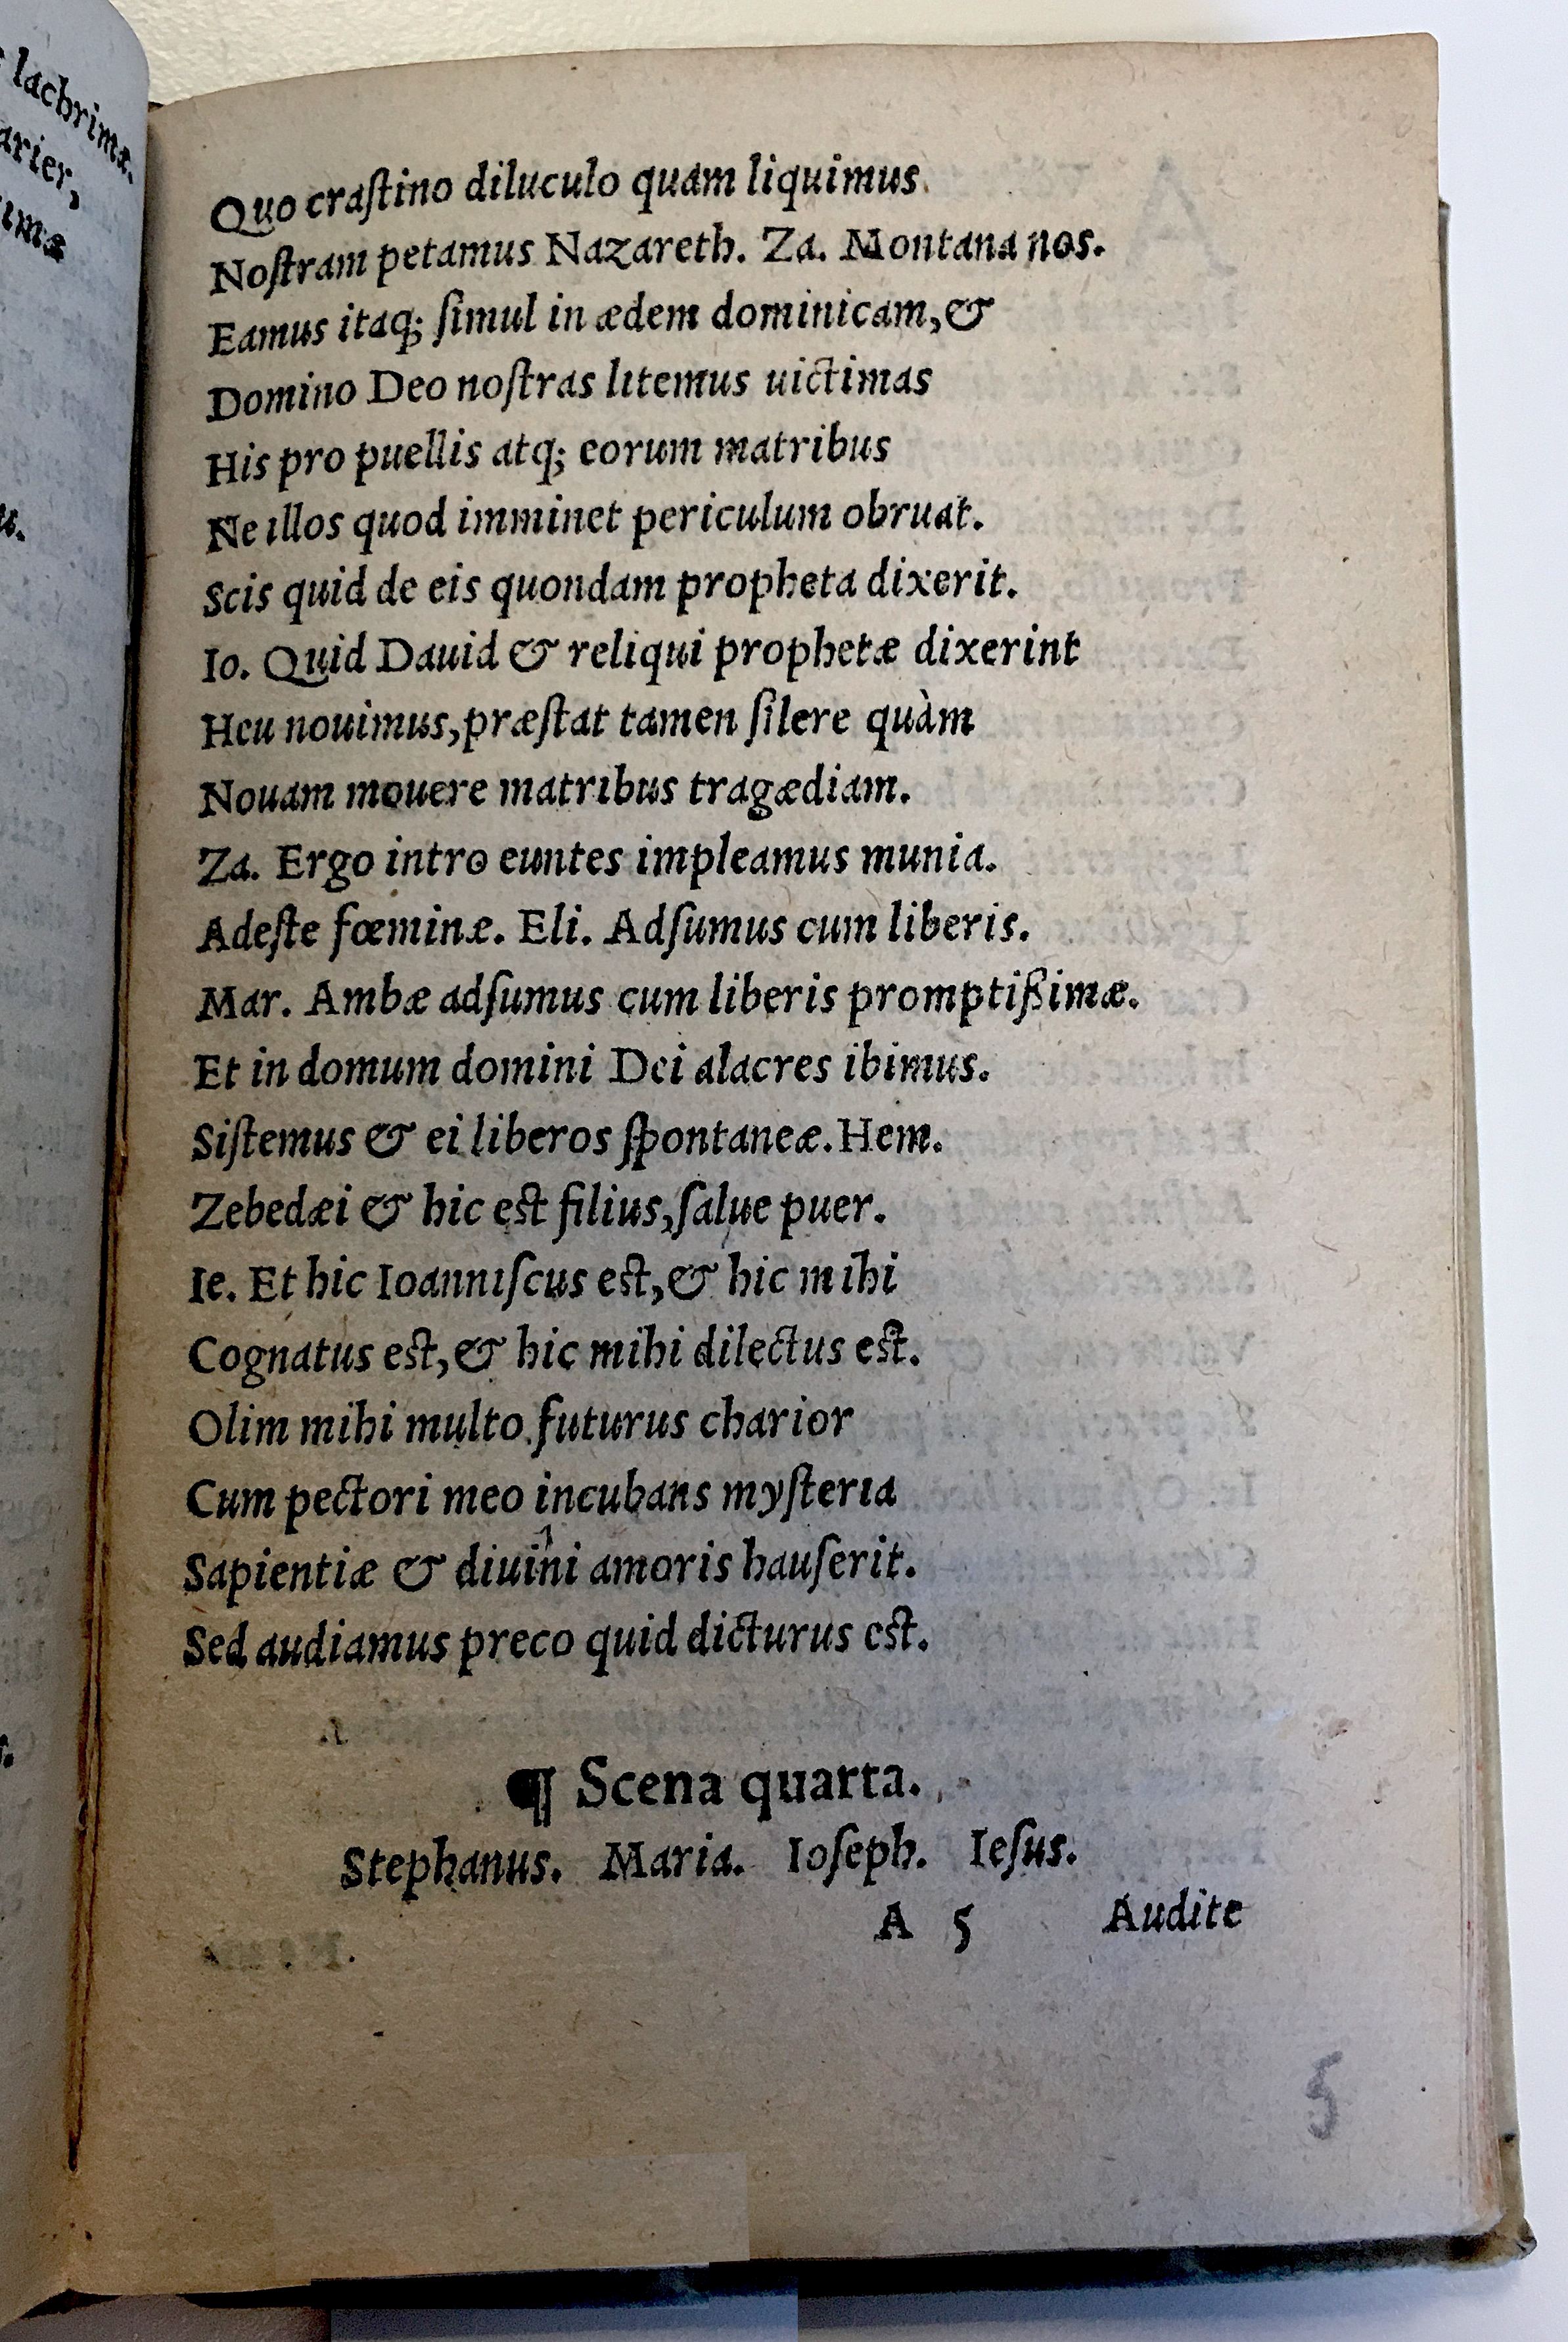 lachrimæ.
Quo craſtino diluculo quàm liquimus
Noſtram petamus Nazareth. Za. Montana nos.
Eamus itaq; ſimul in ædem dominicam,&
Domino Deo noſtras litemus uictimas
His pro puellis atq; eorum matribus
Ne illos quod imminet periculum obruat.
Scis quid de eis quondam propheta dixerit.
Io. Quid Dauid & reliqui prophetæ dixerint
Heu nouimus,præſtat tamen ſilere quàm
Nouam mouere matribus tragædiam.
Za. Ergo intro euntes impleamus munia.
Adeſte fœminæ. Eli. Adſumus cum liberis.
Mar. Ambæ adſumus cum liberis promptißimæ.
Et in domum domini Dei alacres ibimus.
Siſtemus & ei liberos ſpontaneæ. Hem.
Zebedæi & hic est filius,ſalue puer.
Ie. Et hic Ioanniſcus est,& hic mihi
Cognatus est,& hic mihi dilectus est.
Olim mihi multo futurus charior
Cum pectori meo incubans myſteria
Sapientiæ & diuini amoris hauſerit.
Sed audiamus preco quid dicturus est.
¶ Scena quarta.
Stephanus. Maria. Ioſeph. Ieſus.
A 5 Audite
5